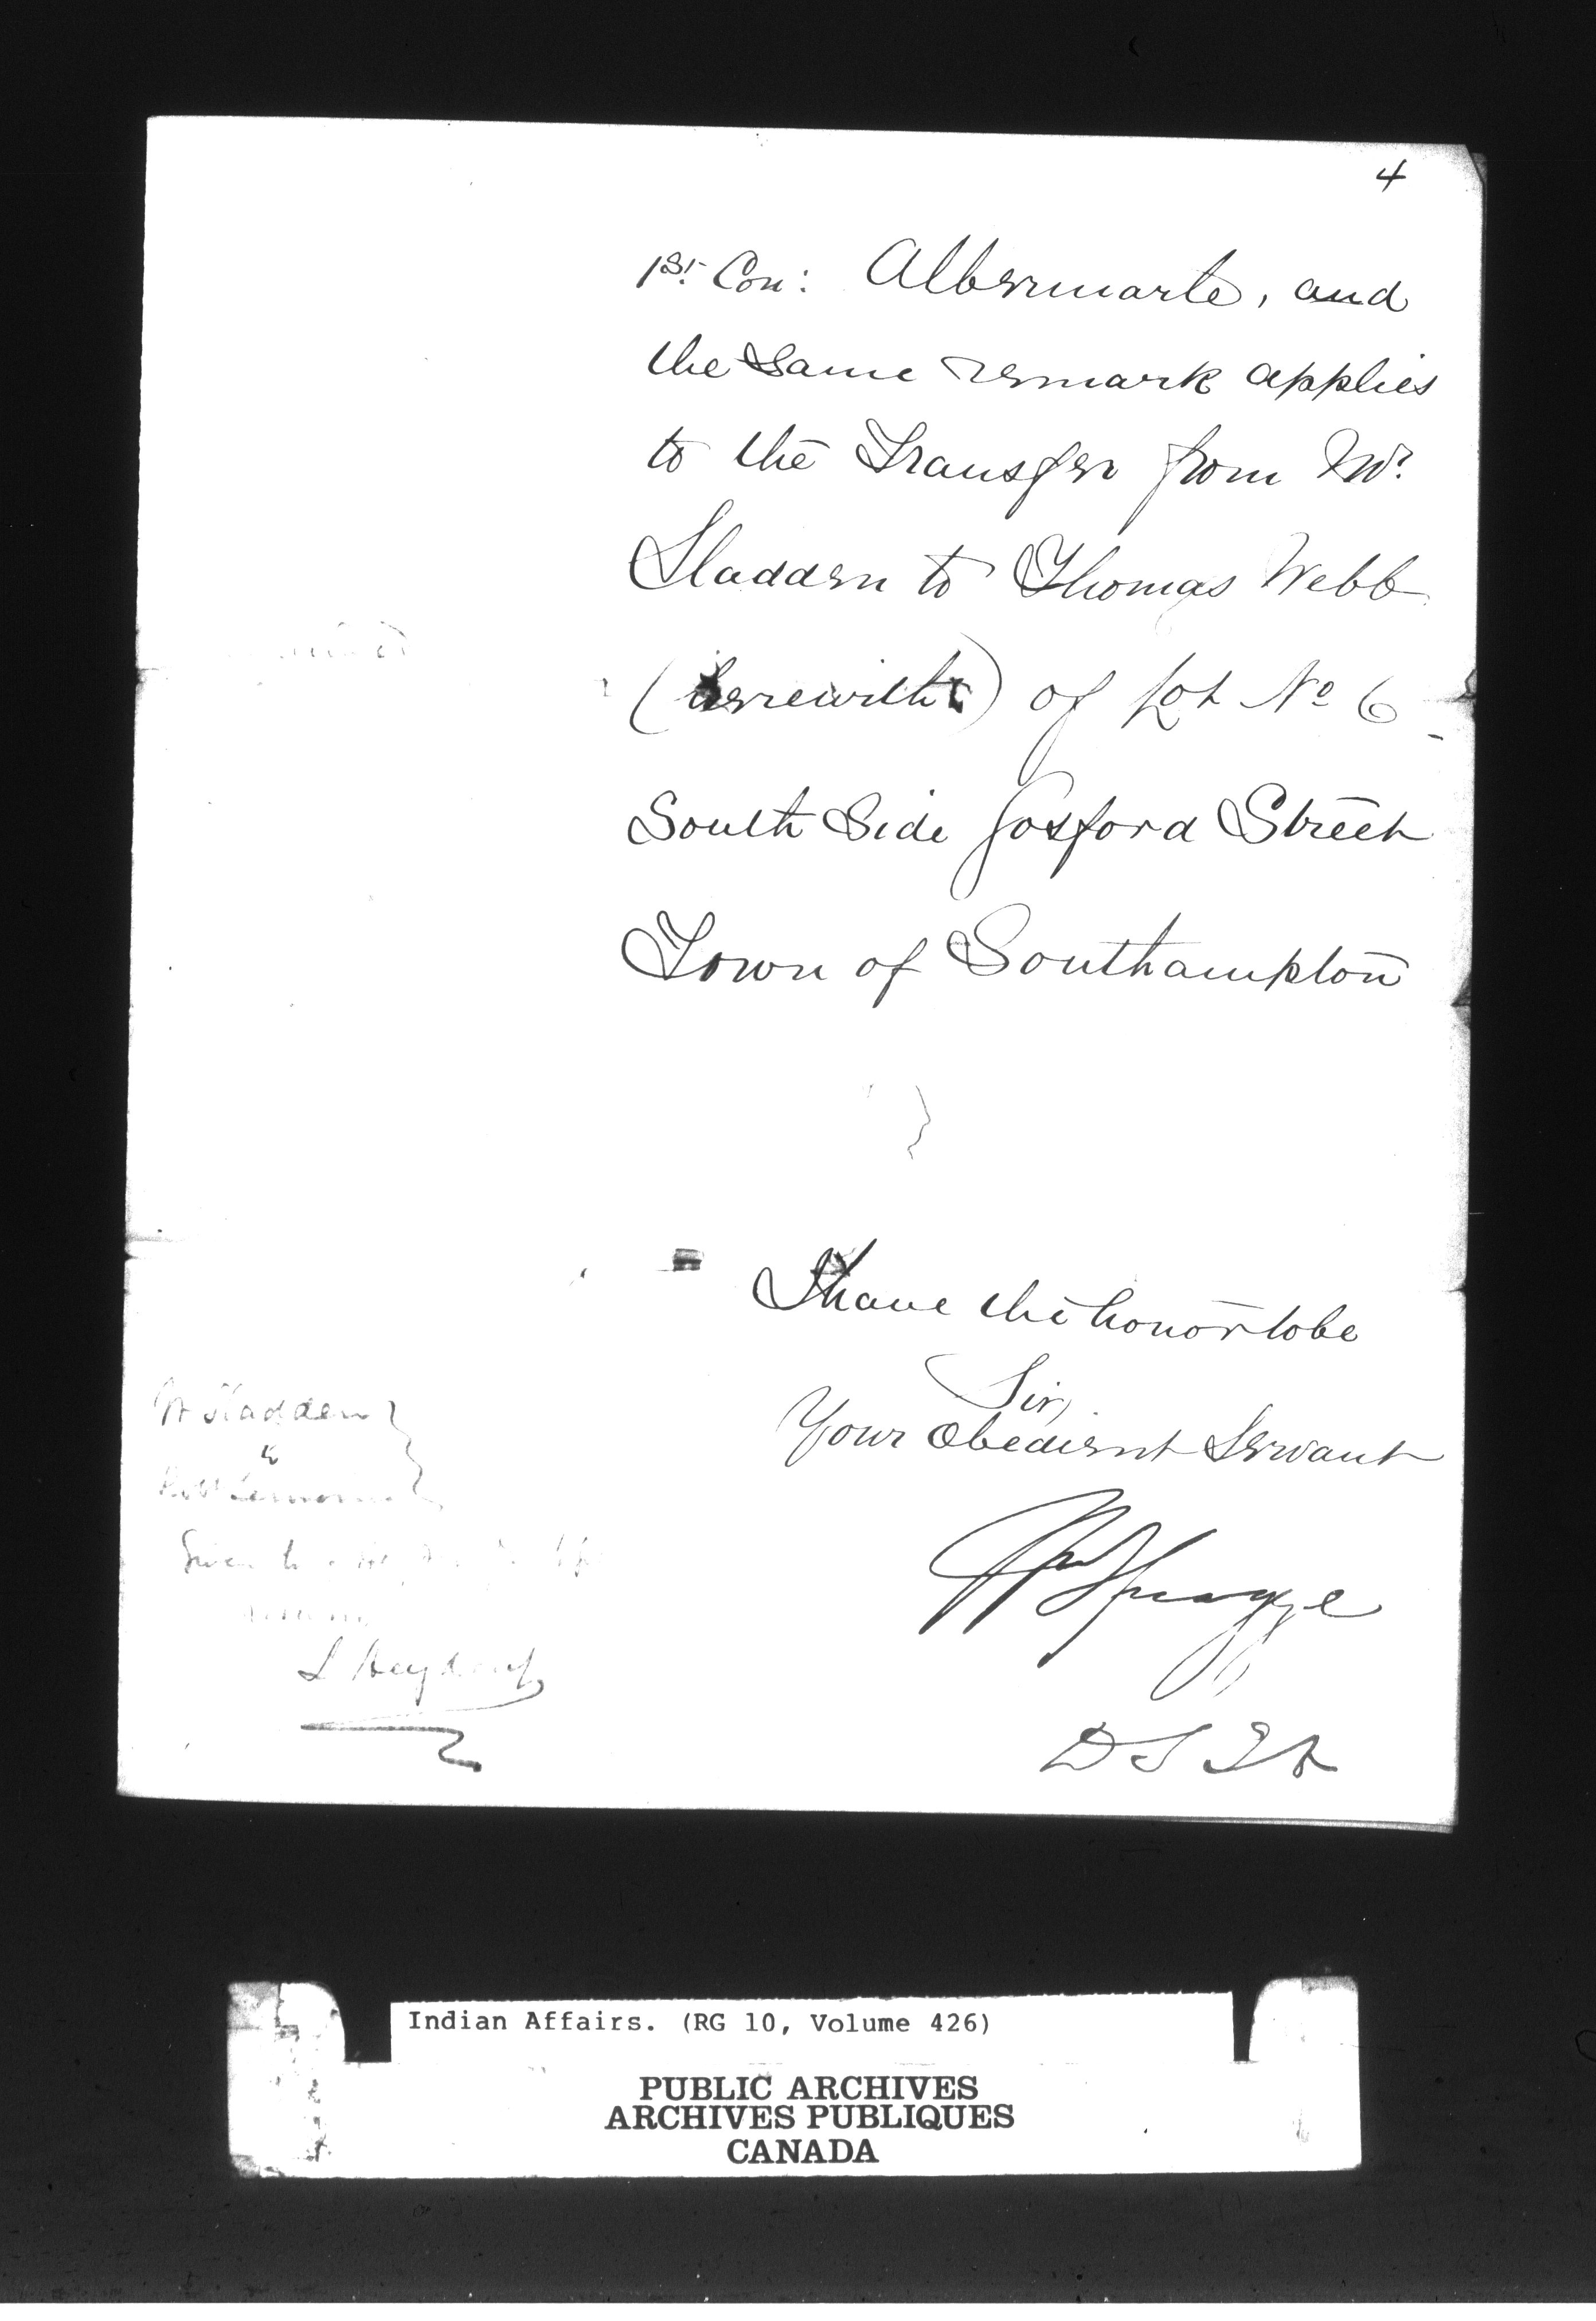 4
1st Con: Albermarle, and
the Same remark applies
to the Transfer from Mr
Sladden to Thomas Webb
(herewith) of Lot No 6
South Side Gosford Street
Town of Southampton
I have the honor to be
Sir,
Your Obedient Servant
Wm Spragge
D S I A
W Sladden
to
Given to
Indian Affairs. (RG 10, Volume 426)
PUBLIC ARCHIVES
ARCHIVES PUBLIQUES
CANADA